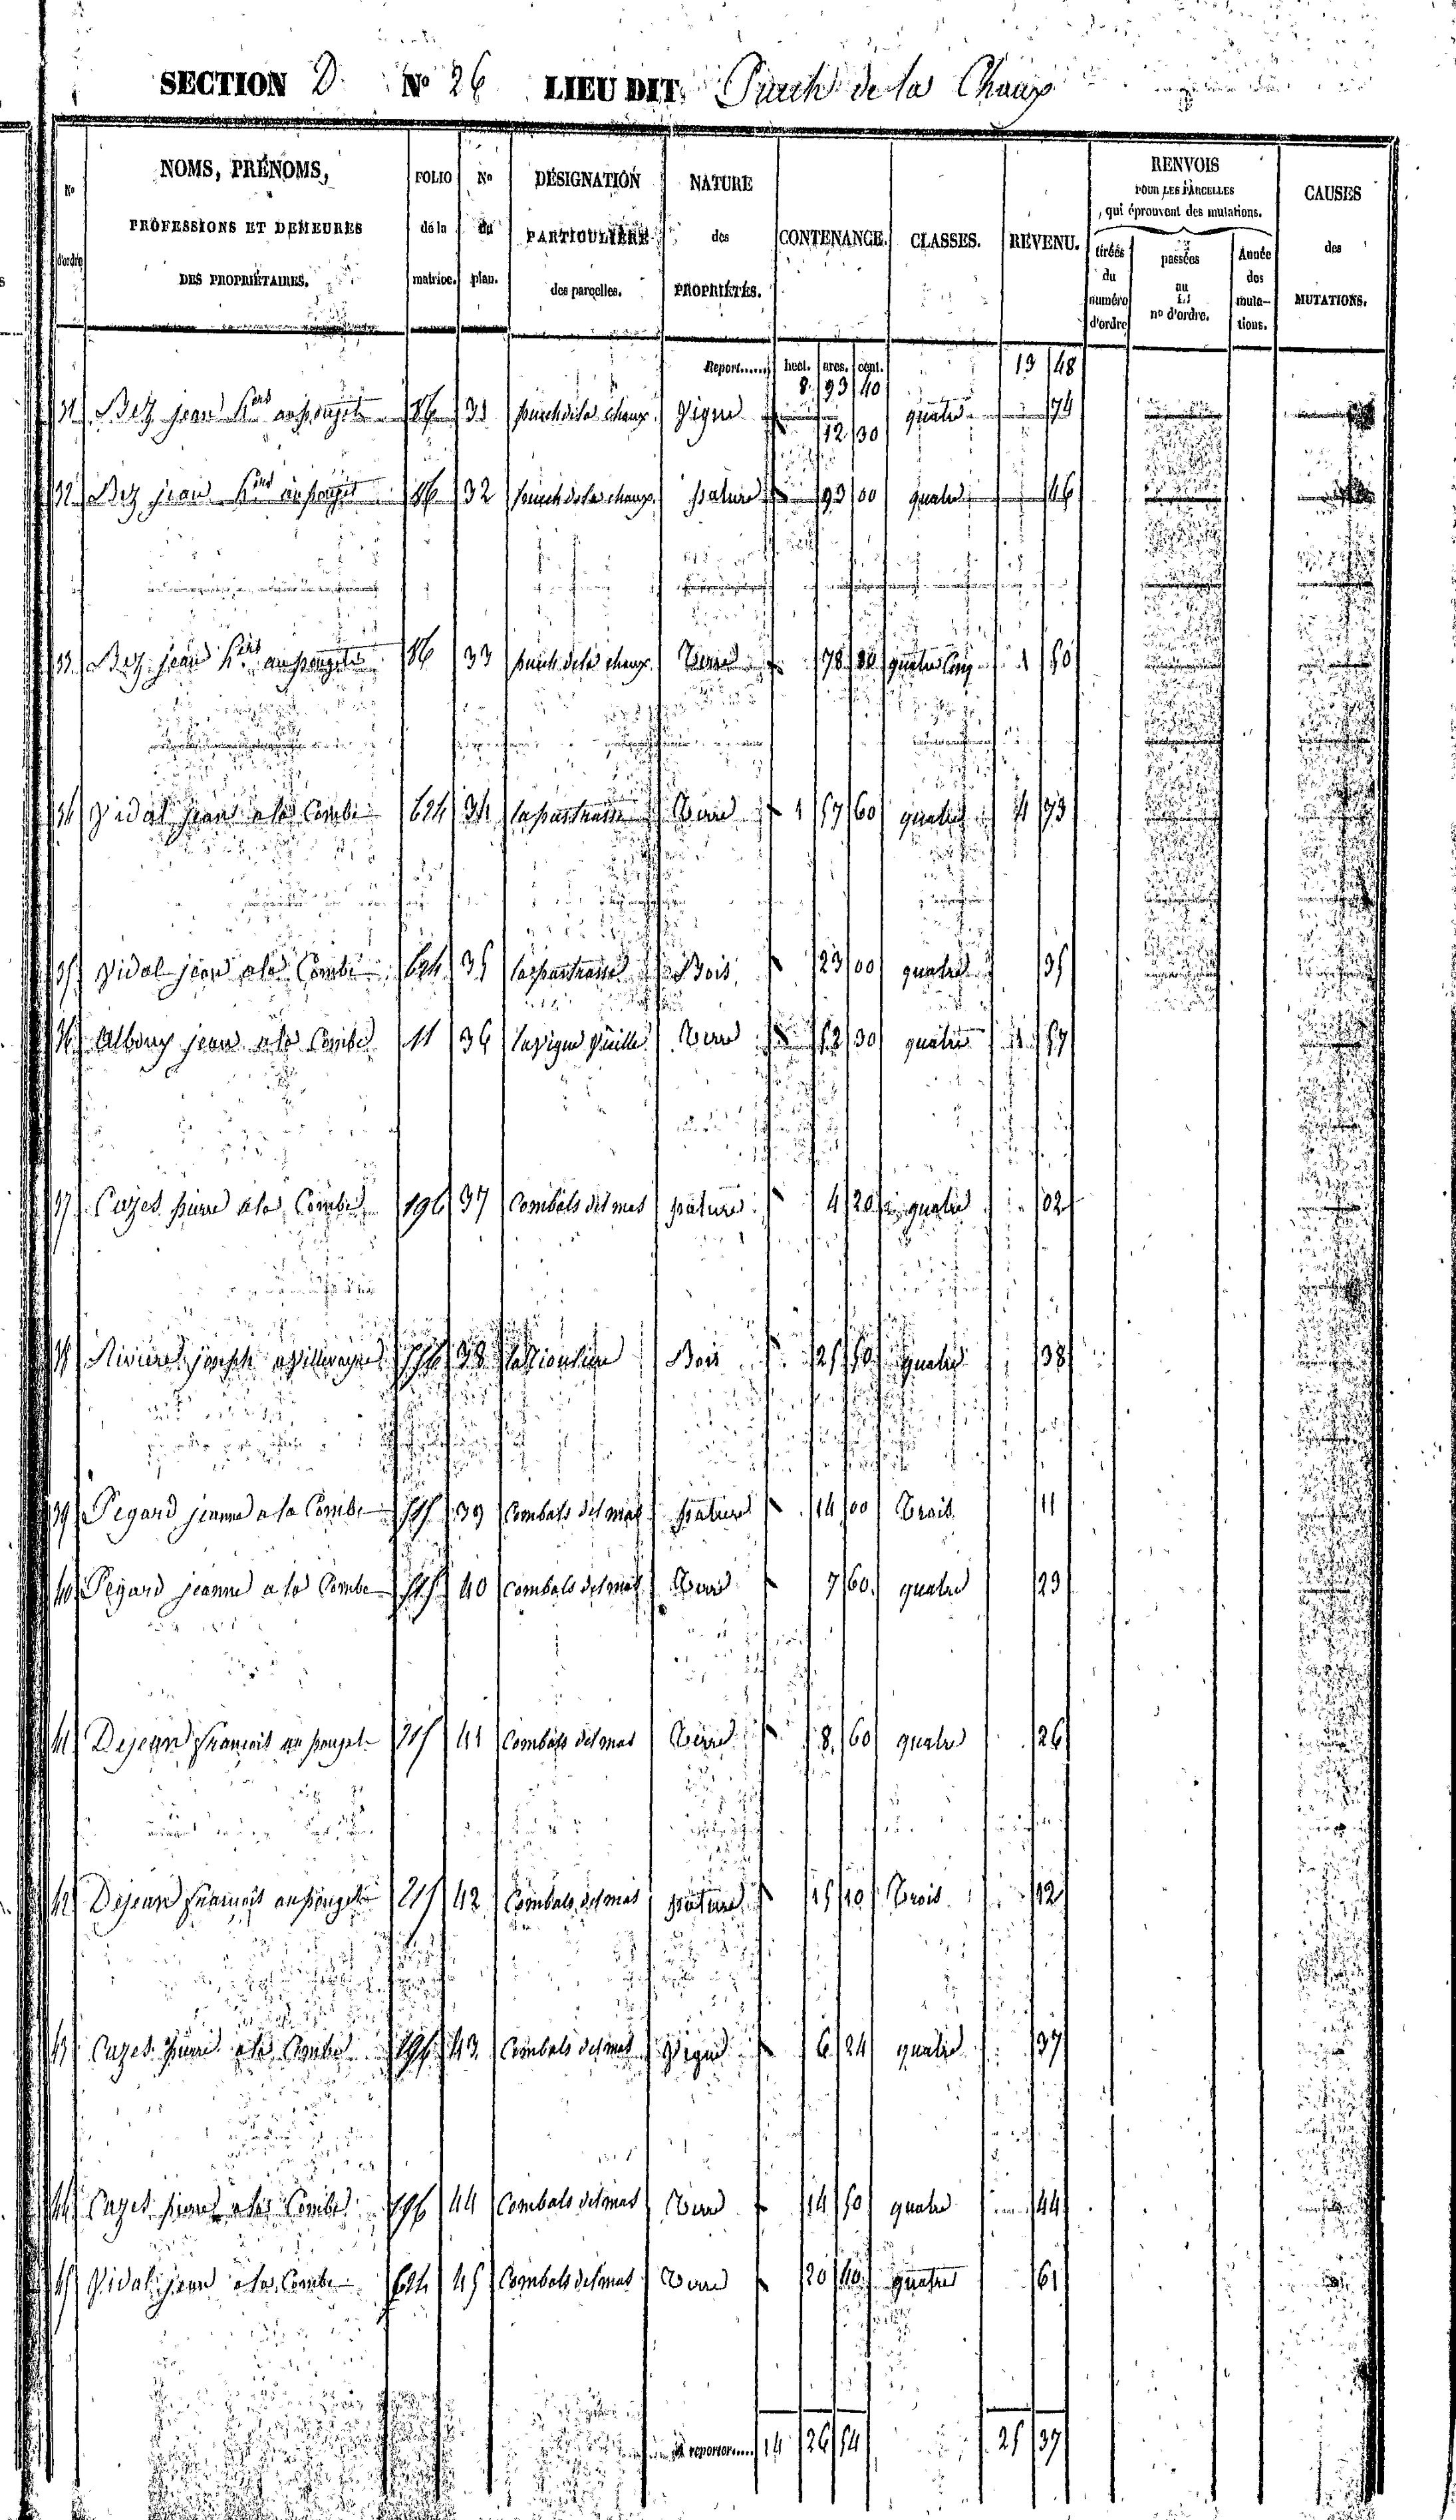 SECTION D. No 26 LIEU DIT Puech de la Chaux
No d'ordre
NOMS, PRÉNOMS, PROFESSIONS ET DEMEURES DES PROPRIÉTAIRES.
FOLIO de la matrice.
No du plan.
DÉSIGNATION PARTICULIÈRE des parcelles.
NATURE des PROPRIÉTÉS.
CONTENANCE.
CLASSES.
REVENU.
RENVOIS POUR LES PARCELLES qui éprouvent des mutations.
tirées du numéro d'ordre
passées au no d'ordre.
Année des mutations.
CAUSES des MUTATIONS.
Report...... hect. ares. cent.
8 93 40 13 48
31 Bez jean au pouget 86 31 puech de la chaux Vigne 12 30 quatre 74
32 Bez jean au pouget 86 32 puech de la chaux pature 93 00 quatre 46
33 Bez jean au pouget 86 33 puech de la chaux Terre 78 quatre Cinq 1 50
34 Vidal jean a la Combe 624 34 Terre 1 57 60 quatre 4 73
35 Vidal jean a la Combe 624 35 Bois 23 00 quatre 35
36 Albouy jean a la Combe 11 36 la vigne vieille Terre 52 30 quatre 1 57
37 Cazes pierre a la Combe 196 37 Combals del mas pature 4 20 quatre 02
38 Riviere joseph 38 Bois 25 50 quatre 38
39 Pegard jeanne a la Combe 39 Combals del mas pature 14 00 Trois 11
40 Pegard jeanne a la Combe 40 Combals del mas Terre 7 60 quatre 23
41 Dejean francois au pouget 215 41 Combals del mas Terre 8 60 quatre 26
42 Dejean francois au pouget 215 42 Combals del mas pature 15 10 Trois 12
43 Cazes pierre a la Combe 196 43 Combals del mas Vigne 6 24 quatre 37
44 Cazes pierre a la Combe 196 44 Combals del mas Terre 14 50 quatre 44
45 Vidal jean a la Combe 624 45 Combals del mas Terre 20 40 quatre 61
A reporter.... 14 26 54 25 37